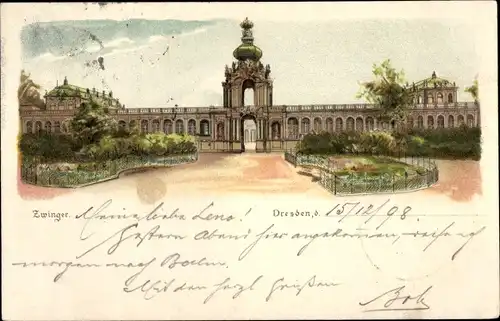 Zwinger. Meine liebe Leno! Dresden, d. 15/12/98
Gestern Abend hier angekommen, reise ich
morgen nach Berlin.
Mit den herzl Grüßen